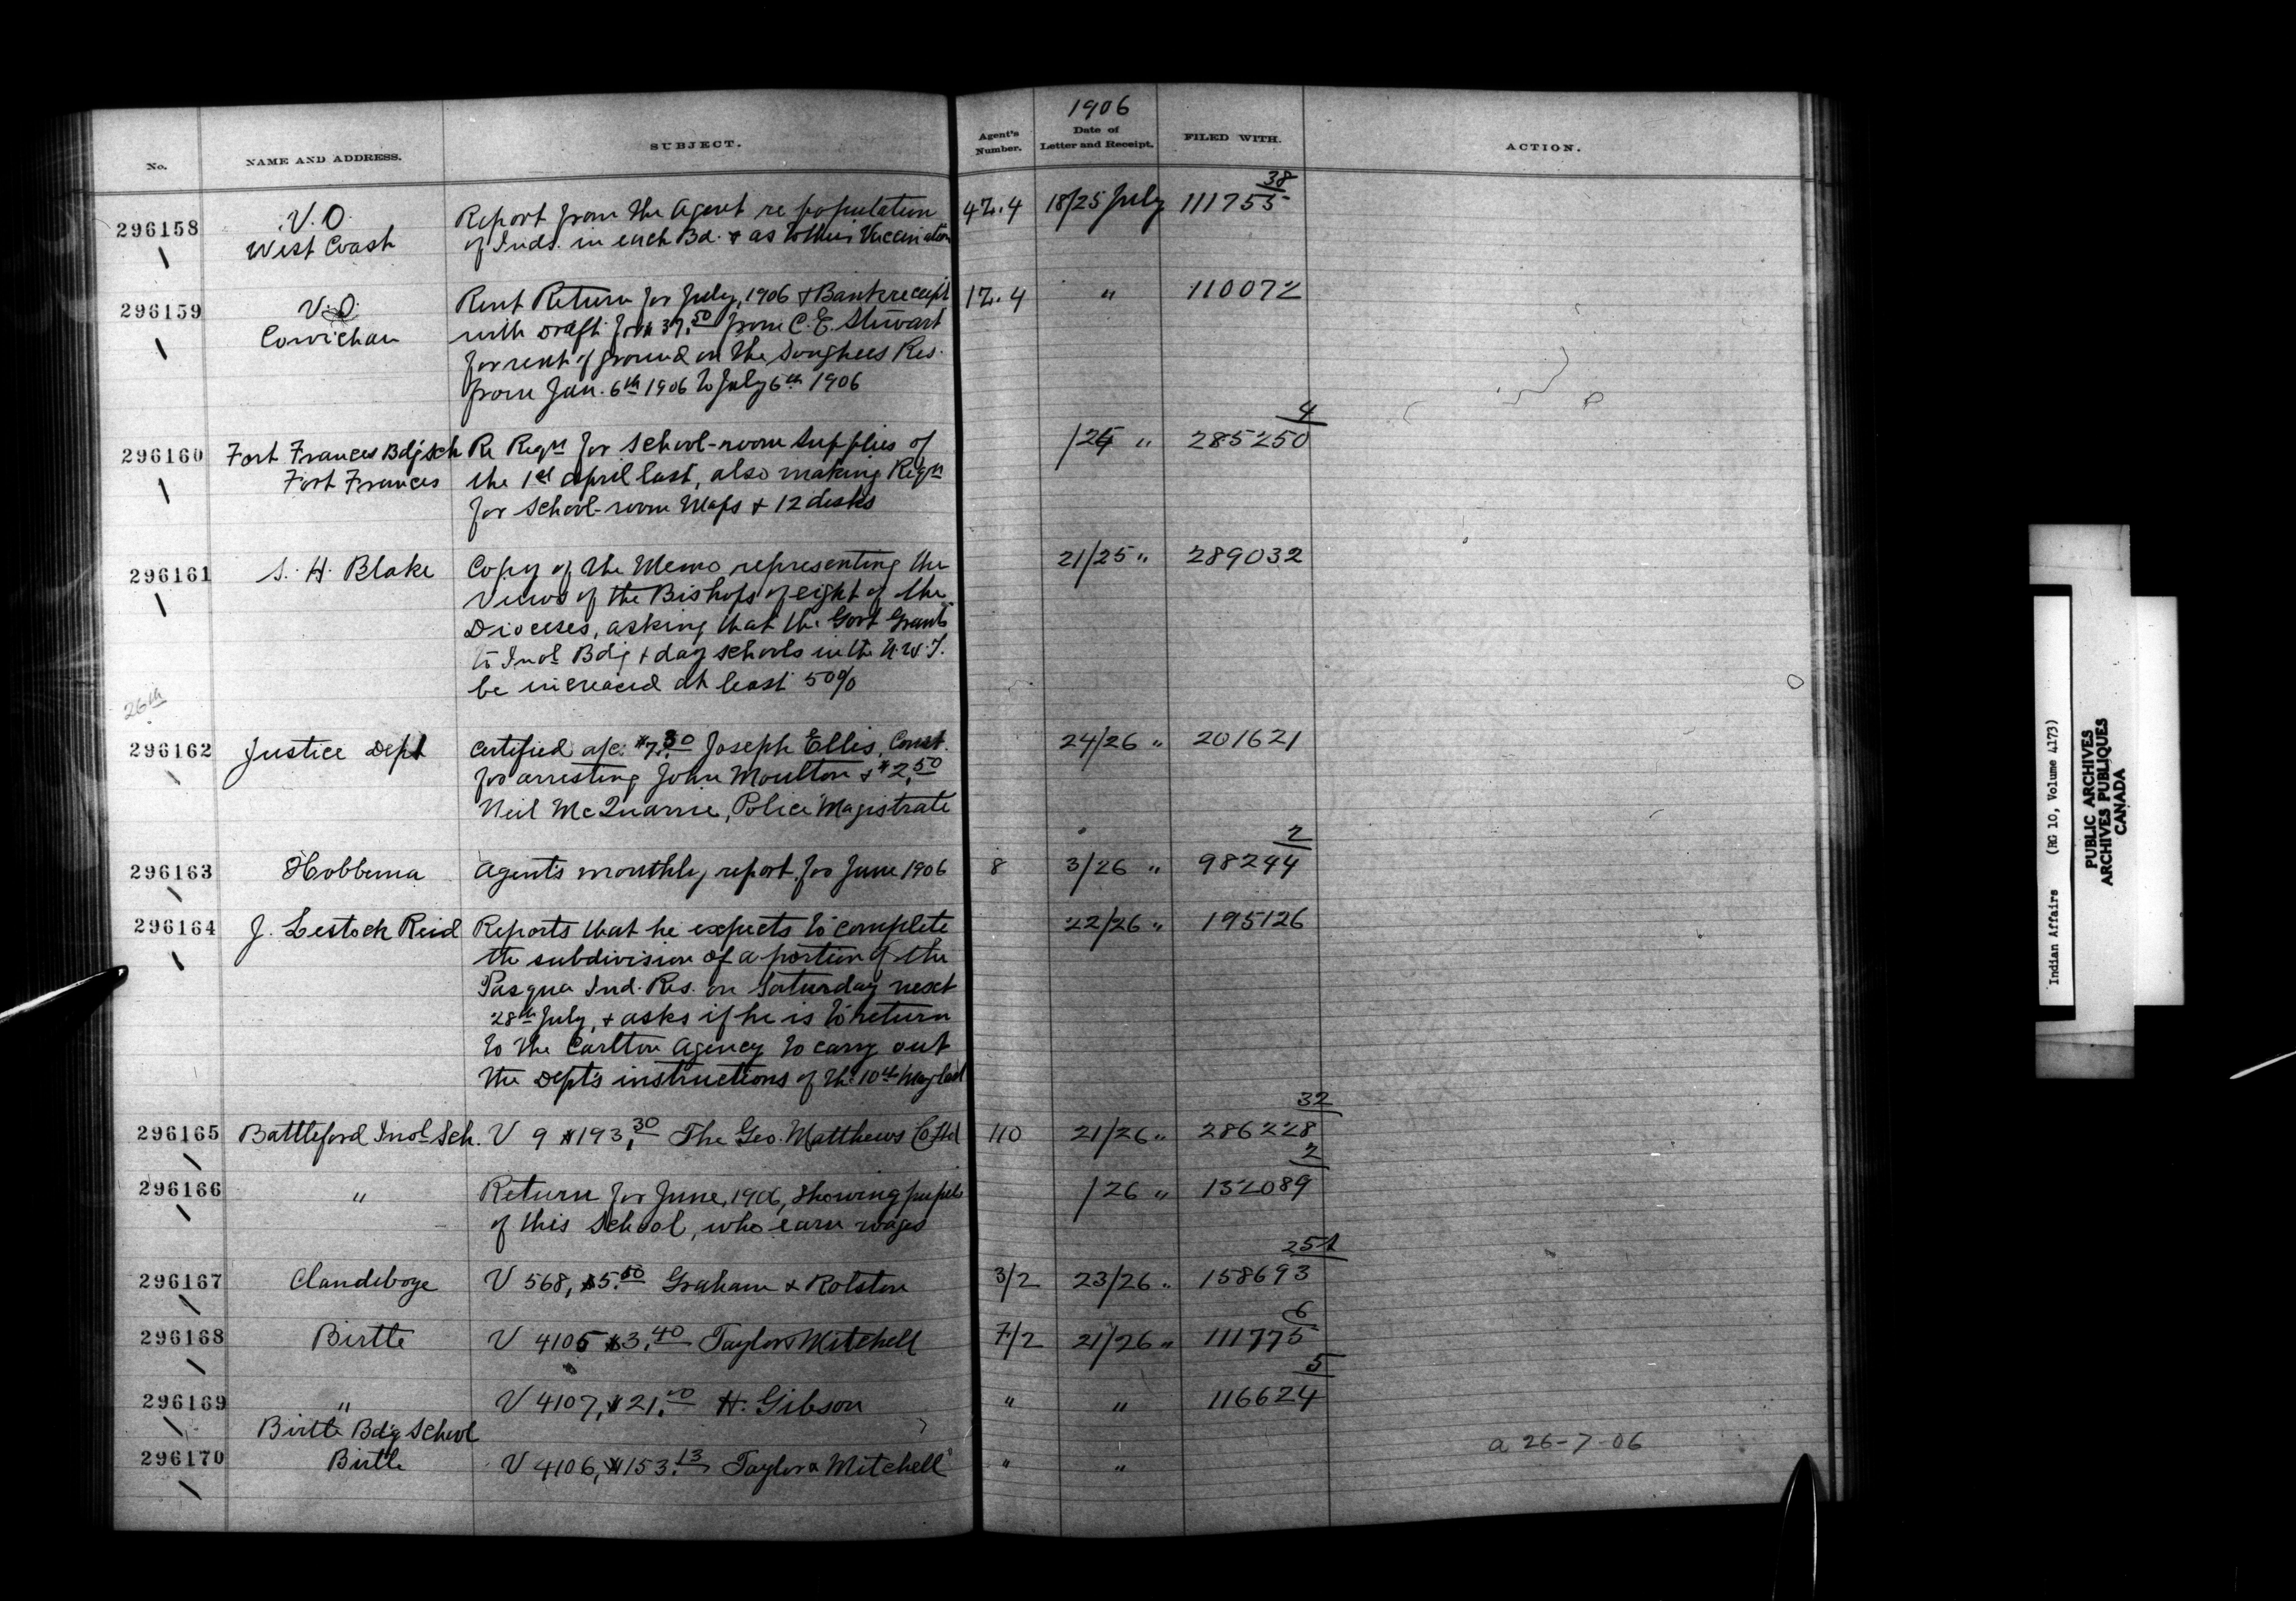 1906
No. NAME AND ADDRESS. SUBJECT. Agent's Number. Date of Letter and Receipt. FILED WITH. ACTION.
296158 V.O. Report from the Agent re population 42.4 18/25 July 111755 38
West Coast of Inds. in each Bd. & as to their Vaccination
296159 V.O. Rent Return for July, 1906 & Bank receipt 12.4 " 110072
Cowichan with Draft for $37.50 from C.E. Stewart
for rent of ground on the Songhees Res.
from Jan. 6th 1906 to July 6th 1906
296160 Fort Frances Bdg Sch Re Reqn for School-room Supplies of /25 " 285250 4
Fort Frances the 1st April last, also making Reqn
for School-room Maps & 12 desks
296161 S. H. Blake Copy of the Memo representing the 21/25 " 289032
Views of the Bishops of eight of the
Dioceses, asking that the Govt Grants
to Indl Bdg & day schools in the N.W.T.
be increased at least 50%
26th
296162 Justice Dept Certified a/c. $7.80 Joseph Ellis, Const. 24/26 " 201621
for arresting John Moulton & $2.50
Neil McQuarrie, Police Magistrate
296163 Hobbema Agent's monthly report for June 1906 8 3/26 " 98244 2
296164 J. Lestock Reid Reports that he expects to complete 22/26 " 195126
the subdivision of a portion of the
Pasqua Ind. Res. on Saturday next
28th July, & asks if he is to return
to the Carlton Agency to carry out
the Dept's instructions of the 10th May last
296165 Battleford Indl Sch. V 9 $193.30 The Geo. Matthews Co Ltd 110 21/26 " 286228 32
296166 " Return for June, 1906, showing pupils /26 " 132089 2
of this School, who earn wages
296167 Clandeboye V 568, $5.50 Graham & Rolston 3/2 23/26 " 158693 251
296168 Birtle V 4105 $3.40 Taylor & Mitchell 7/2 21/26 " 111775 6
296169 " V 4107, $21.00 H. Gibson " " 116624 5
Birtle Bdg School
296170 Birtle V 4106, $153.13 Taylor & Mitchell " "
a 26-7-06
Indian Affairs (RG 10, Volume 4173)
PUBLIC ARCHIVES
ARCHIVES PUBLIQUES
CANADA